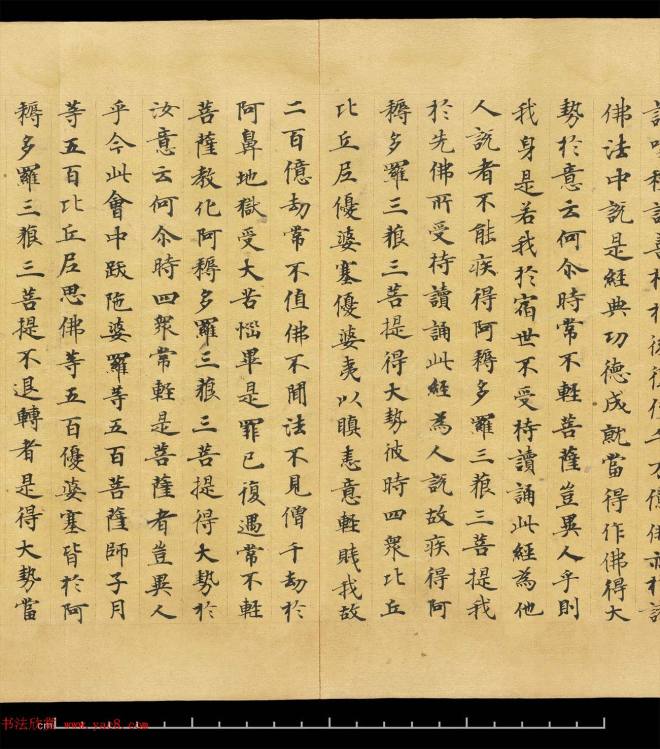 佛法中說是經典功德成就當得作佛得大
勢於意云何尒時常不輕菩薩豈異人乎則
我身是若我於宿世不受持讀誦此經為他
人說者不能疾得阿耨多羅三藐三菩提我
於先佛所受持讀誦此經為人說故疾得阿
耨多羅三藐三菩提得大勢彼時四衆比丘
比丘尼優婆塞優婆夷以瞋恚意輕賤我故
二百億劫常不值佛不聞法不見僧千劫於
阿鼻地獄受大苦惱畢是罪已復遇常不輕
菩薩教化阿耨多羅三藐三菩提得大勢於
汝意云何尒時四衆常輕是菩薩者豈異人
乎今此會中跋陁婆羅等五百菩薩師子月
等五百比丘尼思佛等五百優婆塞皆於阿
耨多羅三藐三菩提不退轉者是得大勢當
书法欣賞 www.yac8.com
cm